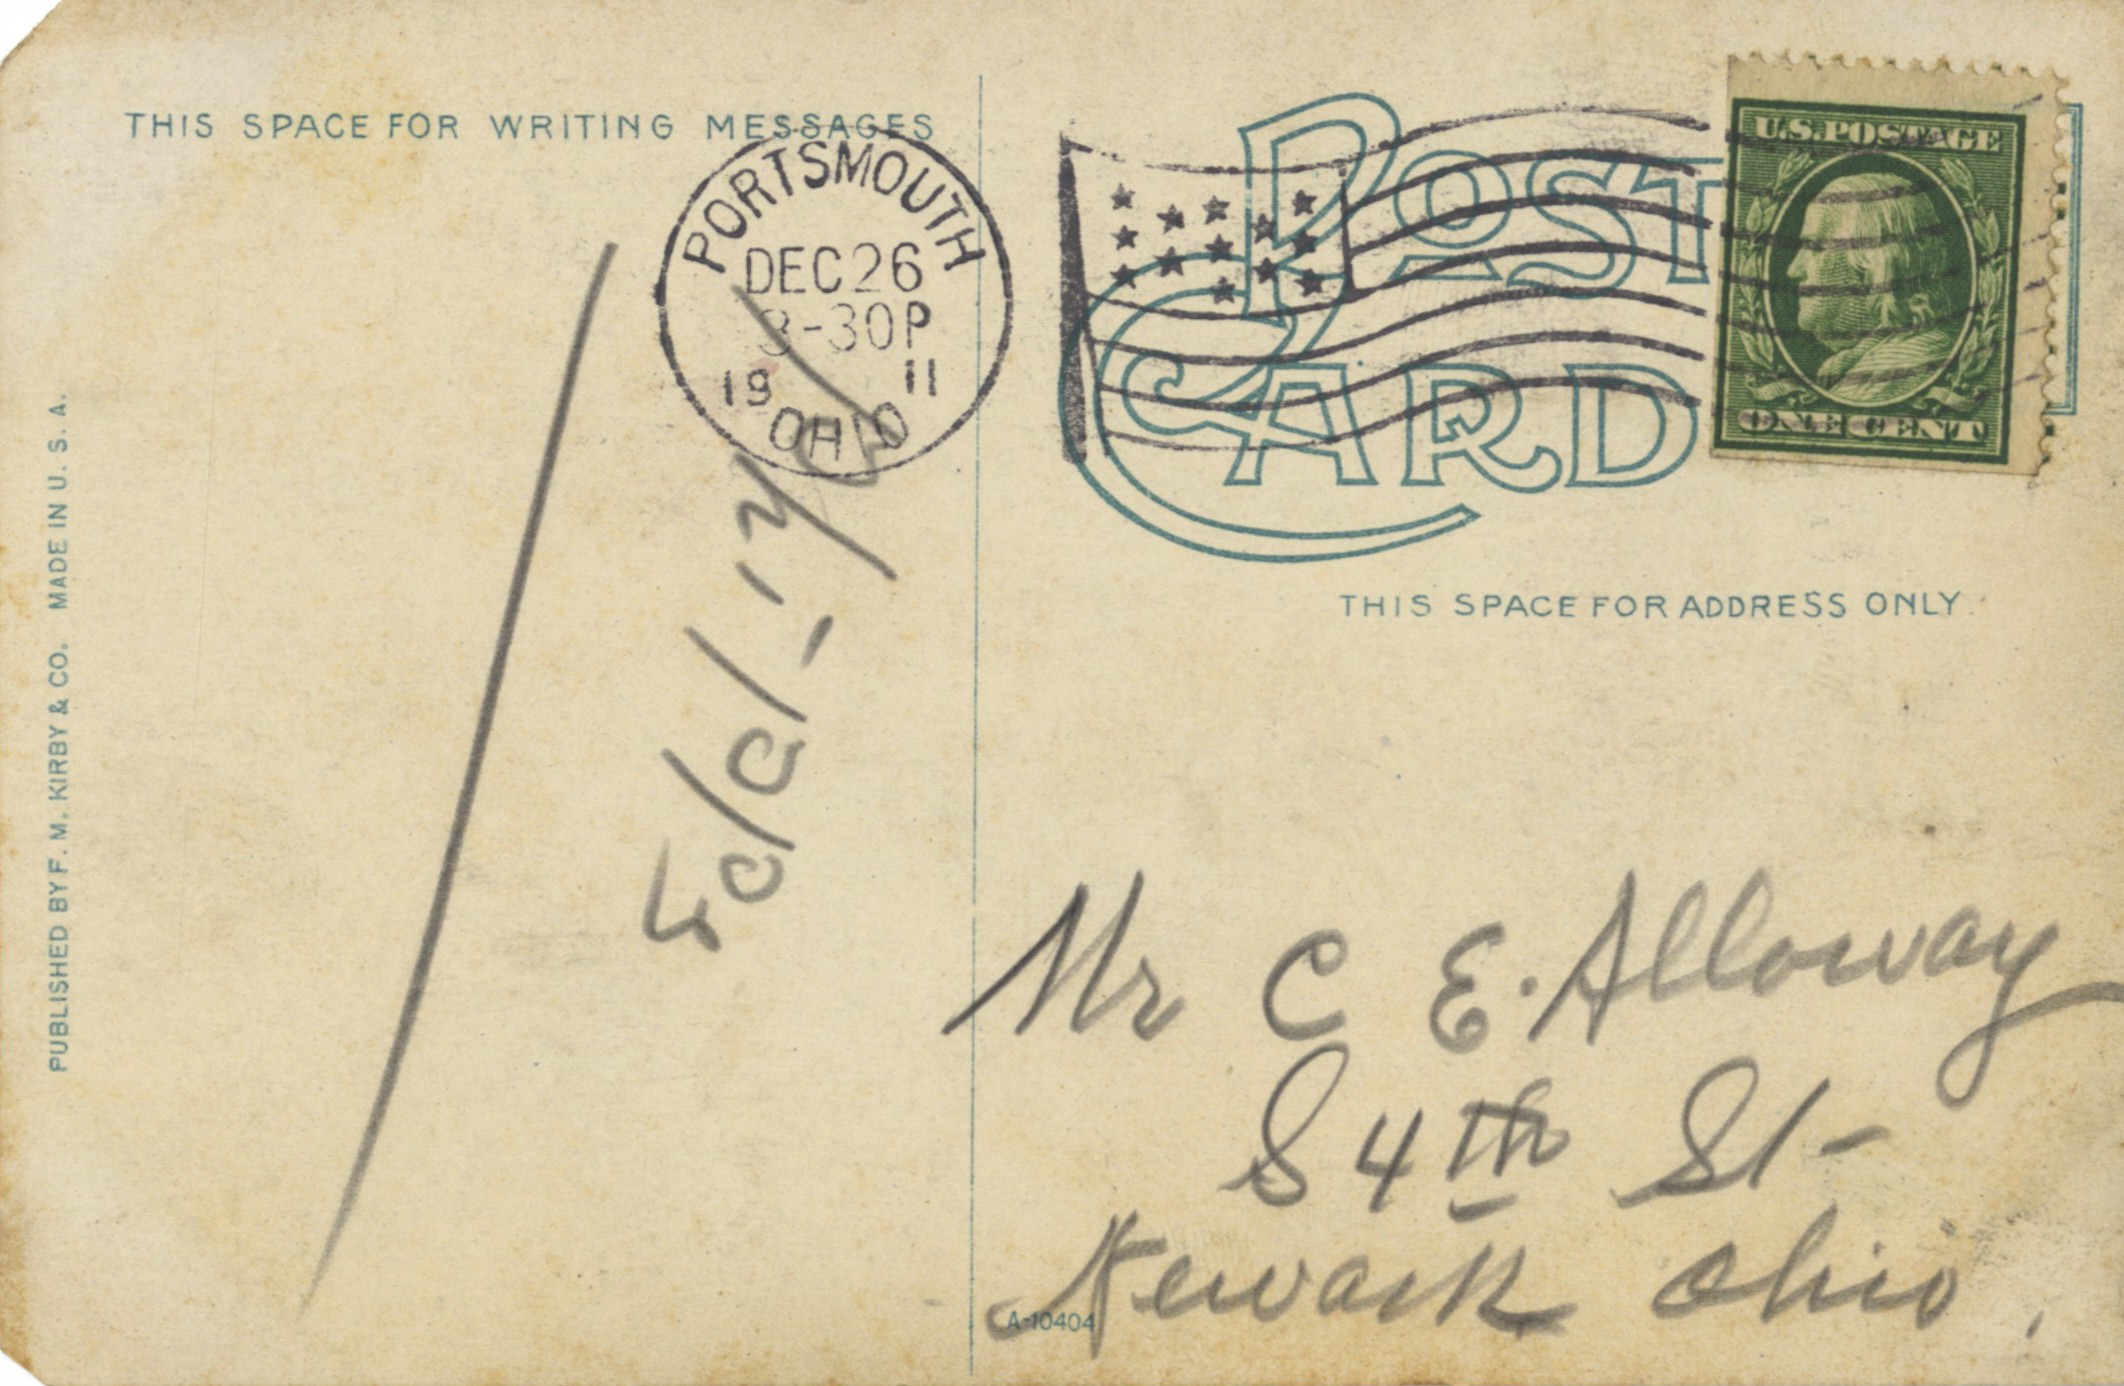 THIS SPACE FOR WRITING MESSAGES
PORTSMOUTH
DEC 26
3-30P
19 11
OHIO
POST CARD
U.S. POSTAGE
ONE CENT
THIS SPACE FOR ADDRESS ONLY.
PUBLISHED BY F. M. KIRBY & CO. MADE IN U. S. A.
Mr C E. Alloway
S 4th St-
Newark Ohio.
A-10404